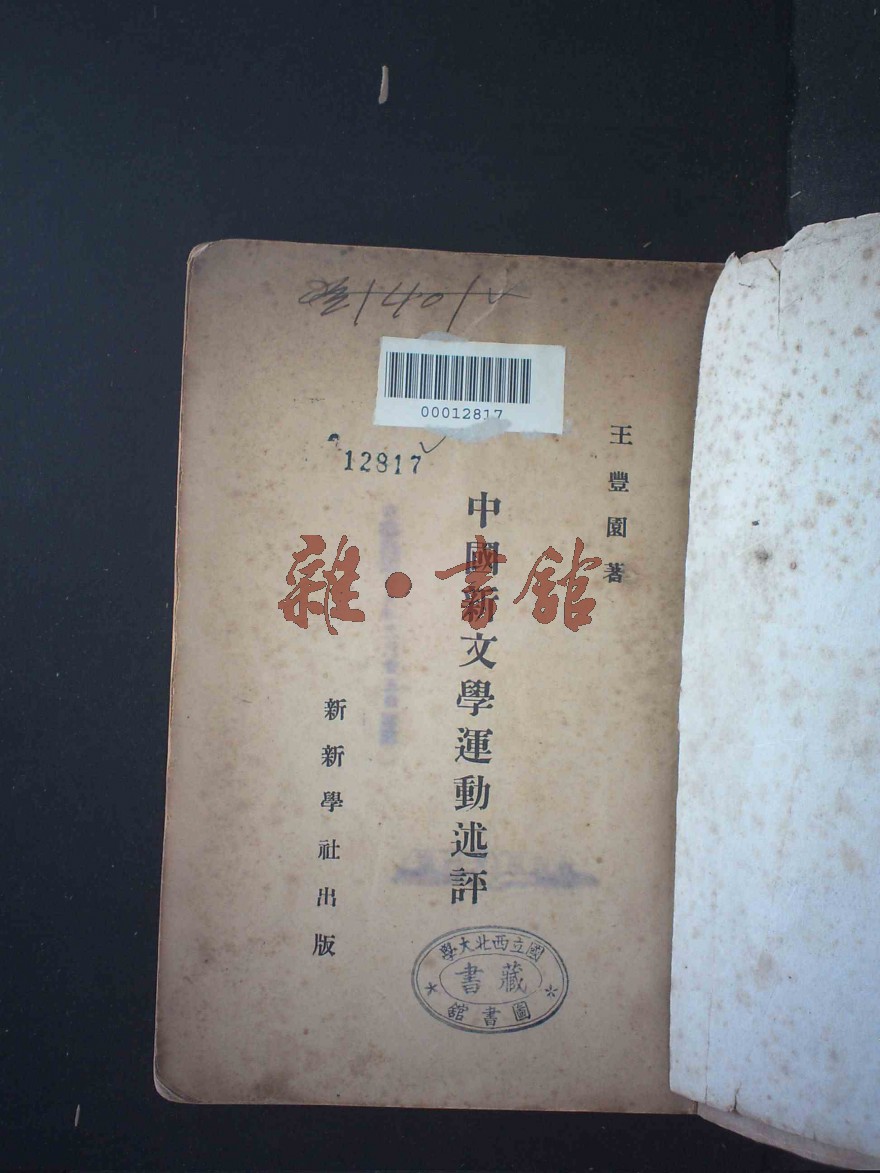 00012817
12817
王豐園著
中國新文學運動述評
新新學社出版
雜·書館
國立西北大學
藏書
圖書館